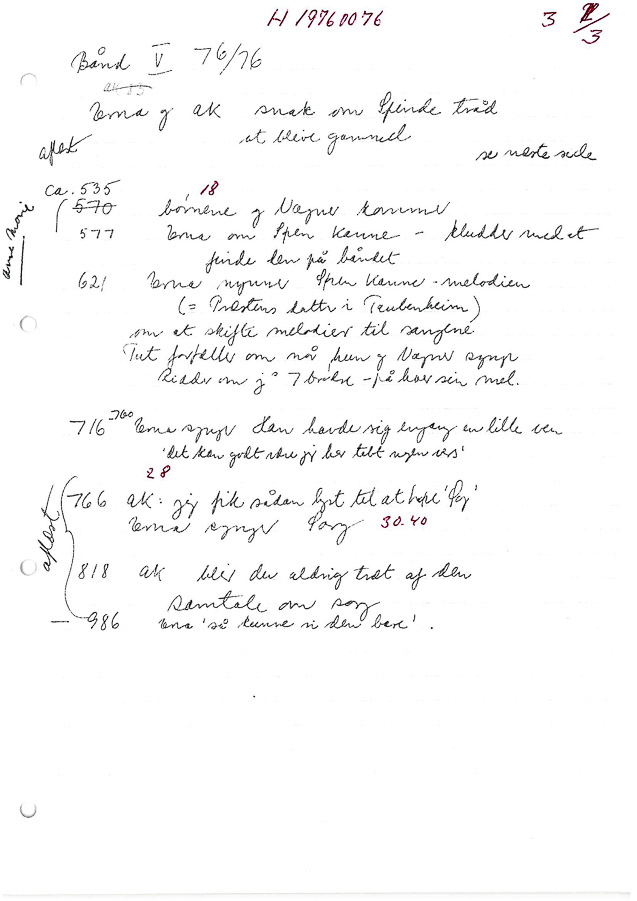 H 19760076 3 2/3
Bånd V 76/76
Erna og AK snak om Spinde tråd
at blive gammel
aflæst
se næste side
ca. 535 18
570 børnene og Vagner kommer
anne marie
577 Erna om Spen Kanne - kludder med at
finde den på båndet
621 Erna nynner Spen Kanne-melodien
(= Præstens datter i Taubenheim)
om at skifte melodier til sangene.
Tut fortæller om når hun og Vagner synger
Ridder om 7 brødre - på hver sin mel.
716-760 Erna synger Han havde sig engang en lille ven
'det kan godt være jeg har tabt nogen vers'
28
766 AK: jeg fik sådan lyst til at høre 'Sorg'
Erna synger Sorg 30.40
aflæst
818 AK bliver du aldrig træt af den
samtale om sorg
— 986 Erna 'så kunne vi den bare'.